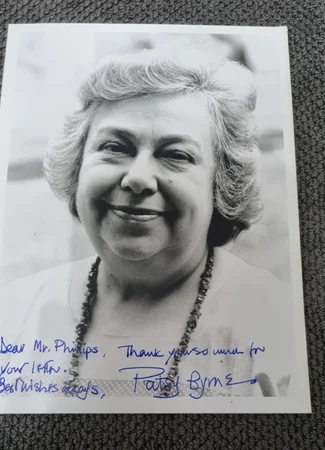 Dear Mr. Phillips, Thank you so much for
your letter.
Best wishes always, Patsy Byrne